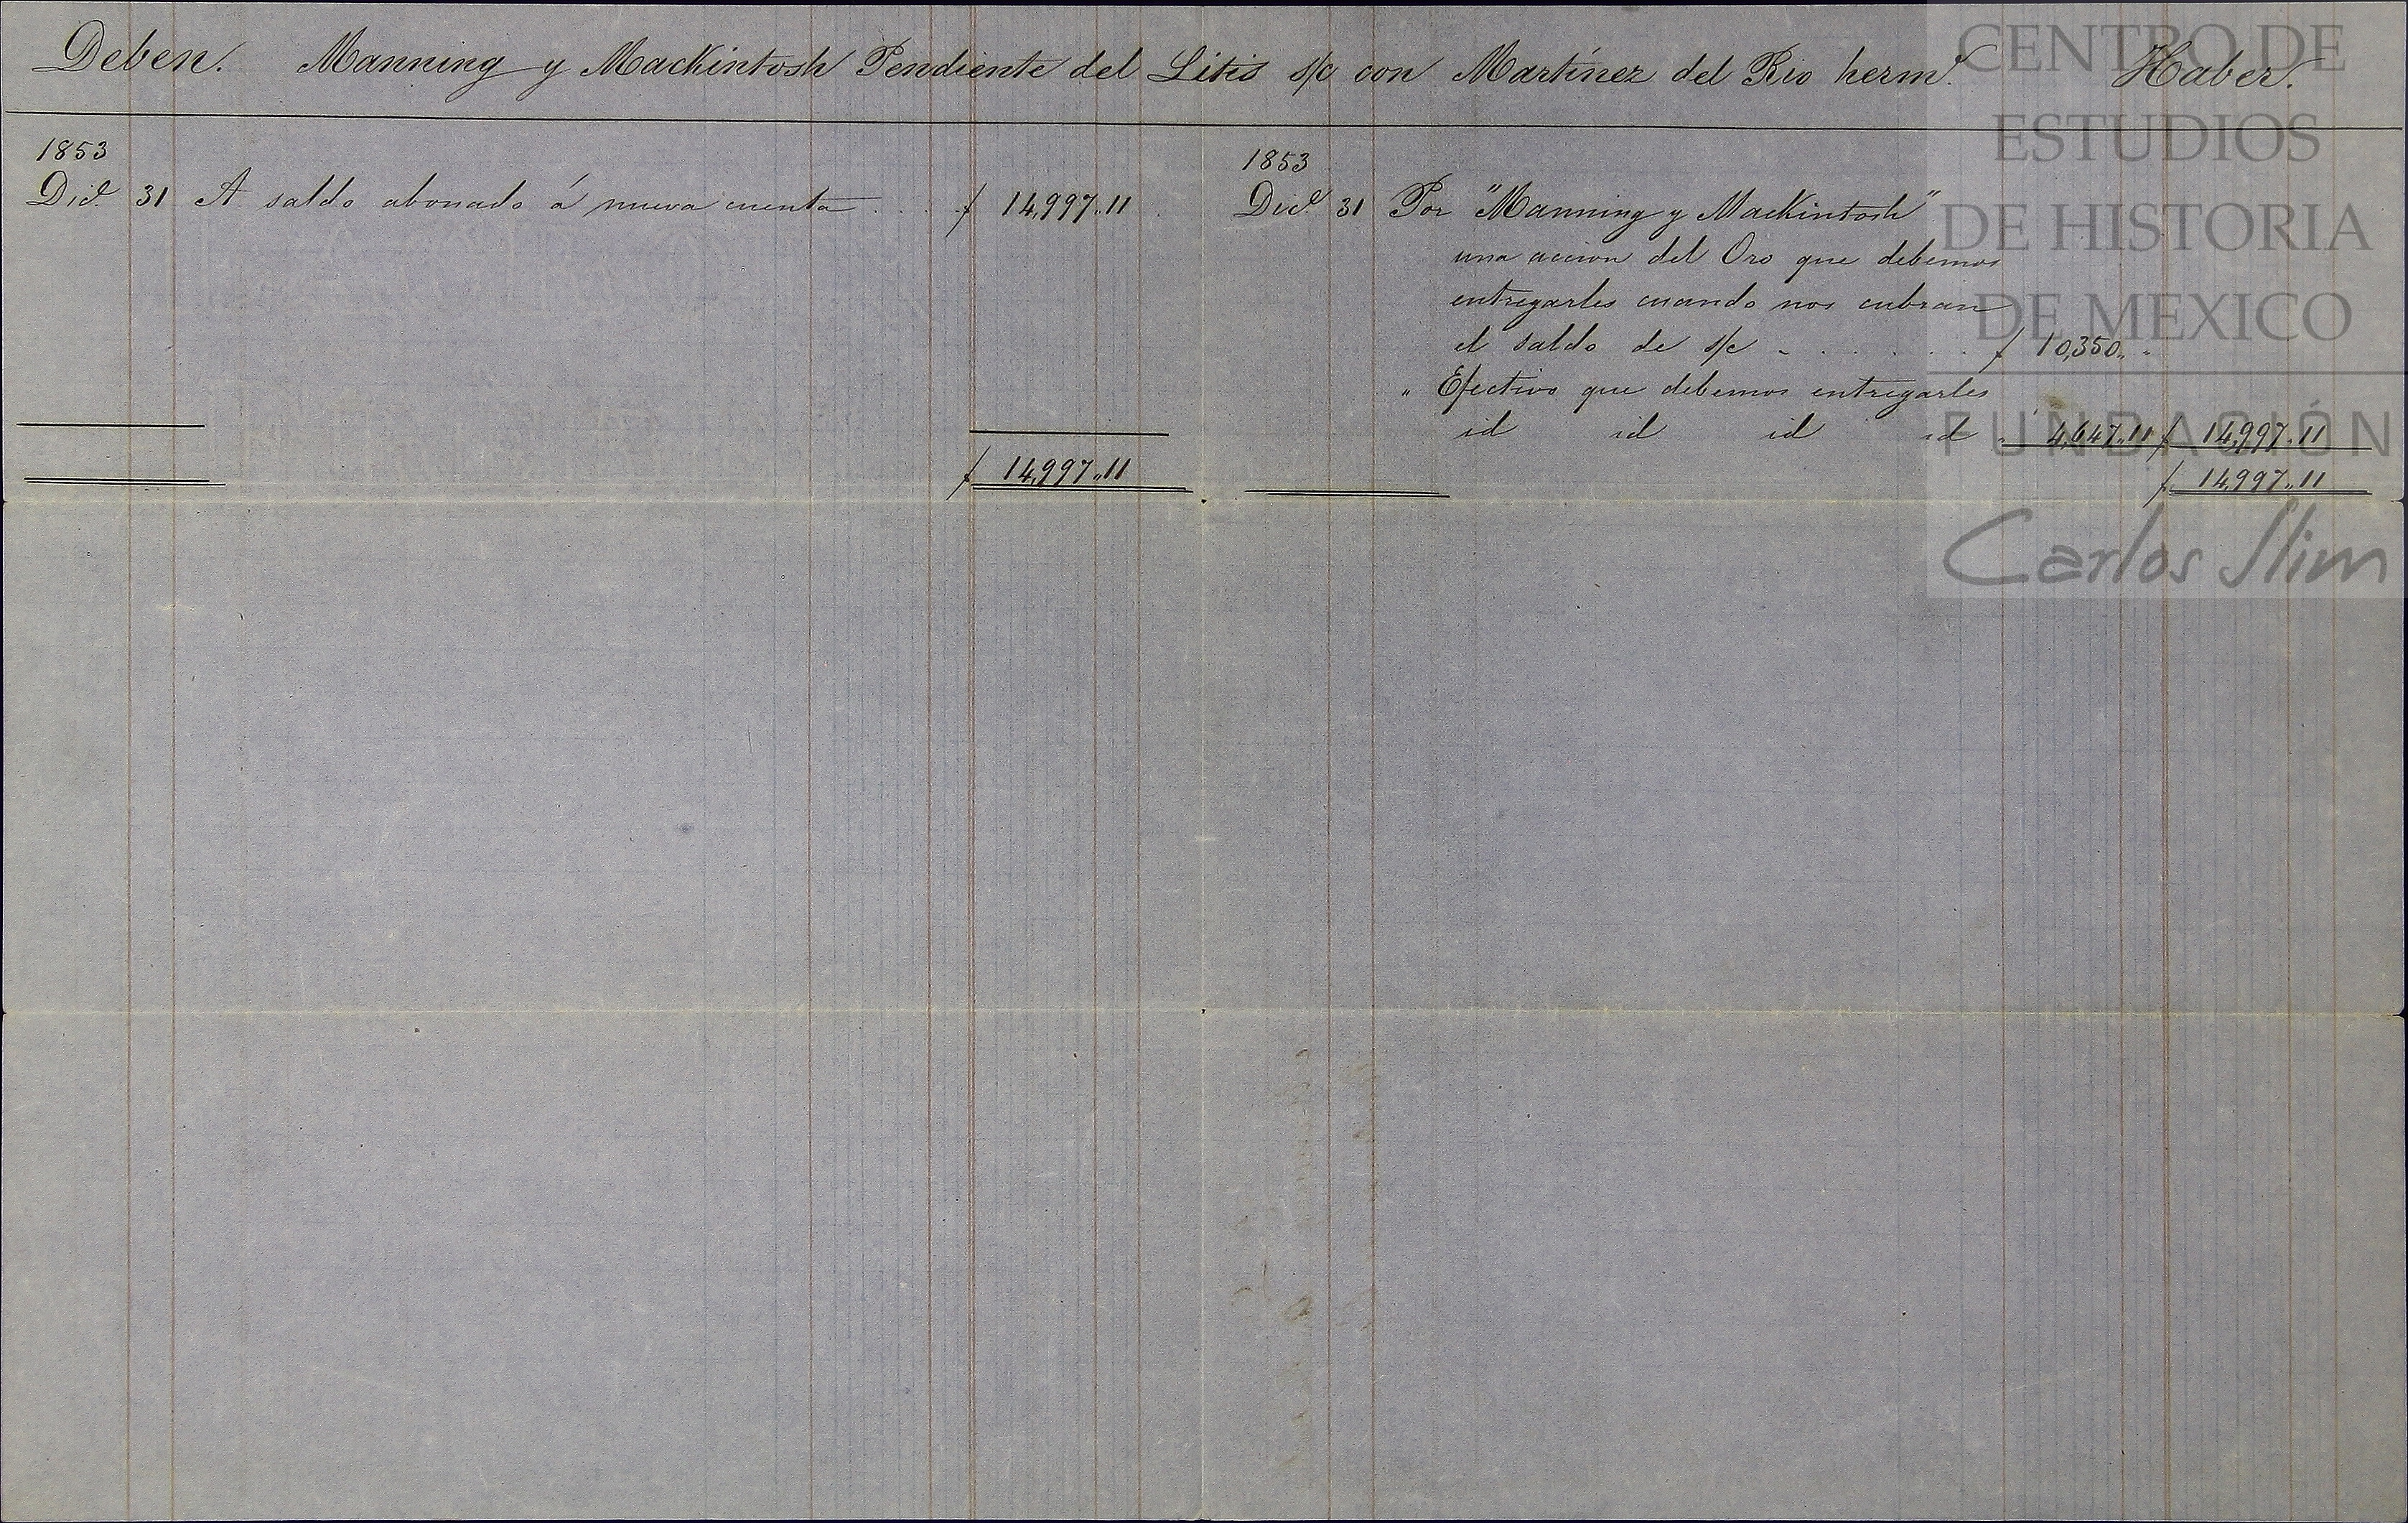 Deben. Manning y Mackintosh Pendiente del Litis s/c con Martínez del Rio herm.s Haber.
1853
Dic.e 31 A saldo abonado á nueva cuenta . . . $ 14,997.,11
$ 14,997.,11
1853
Dic.e 31 Por "Manning y Mackintosh"
una accion del Oro que debemos
entregarles cuando nos cubran
el saldo de s/c - . . . . . $ 10,350.,-
" Efectivo que debemos entregarles
id id id id " 4,647.,11 $ 14,997.,11
$ 14,997.,11
CENTRO DE
ESTUDIOS
DE HISTORIA
DE MEXICO
FUNDACIÓN
Carlos Slim